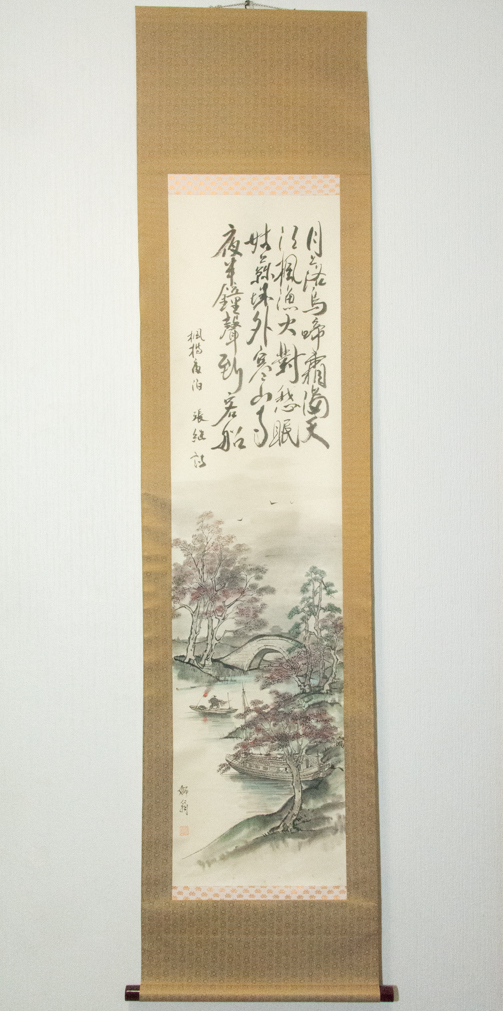 月落烏啼霜満天
江楓漁火對愁眠
姑蘇城外寒山寺
夜半鐘聲到客船
楓橋夜泊 張継詩